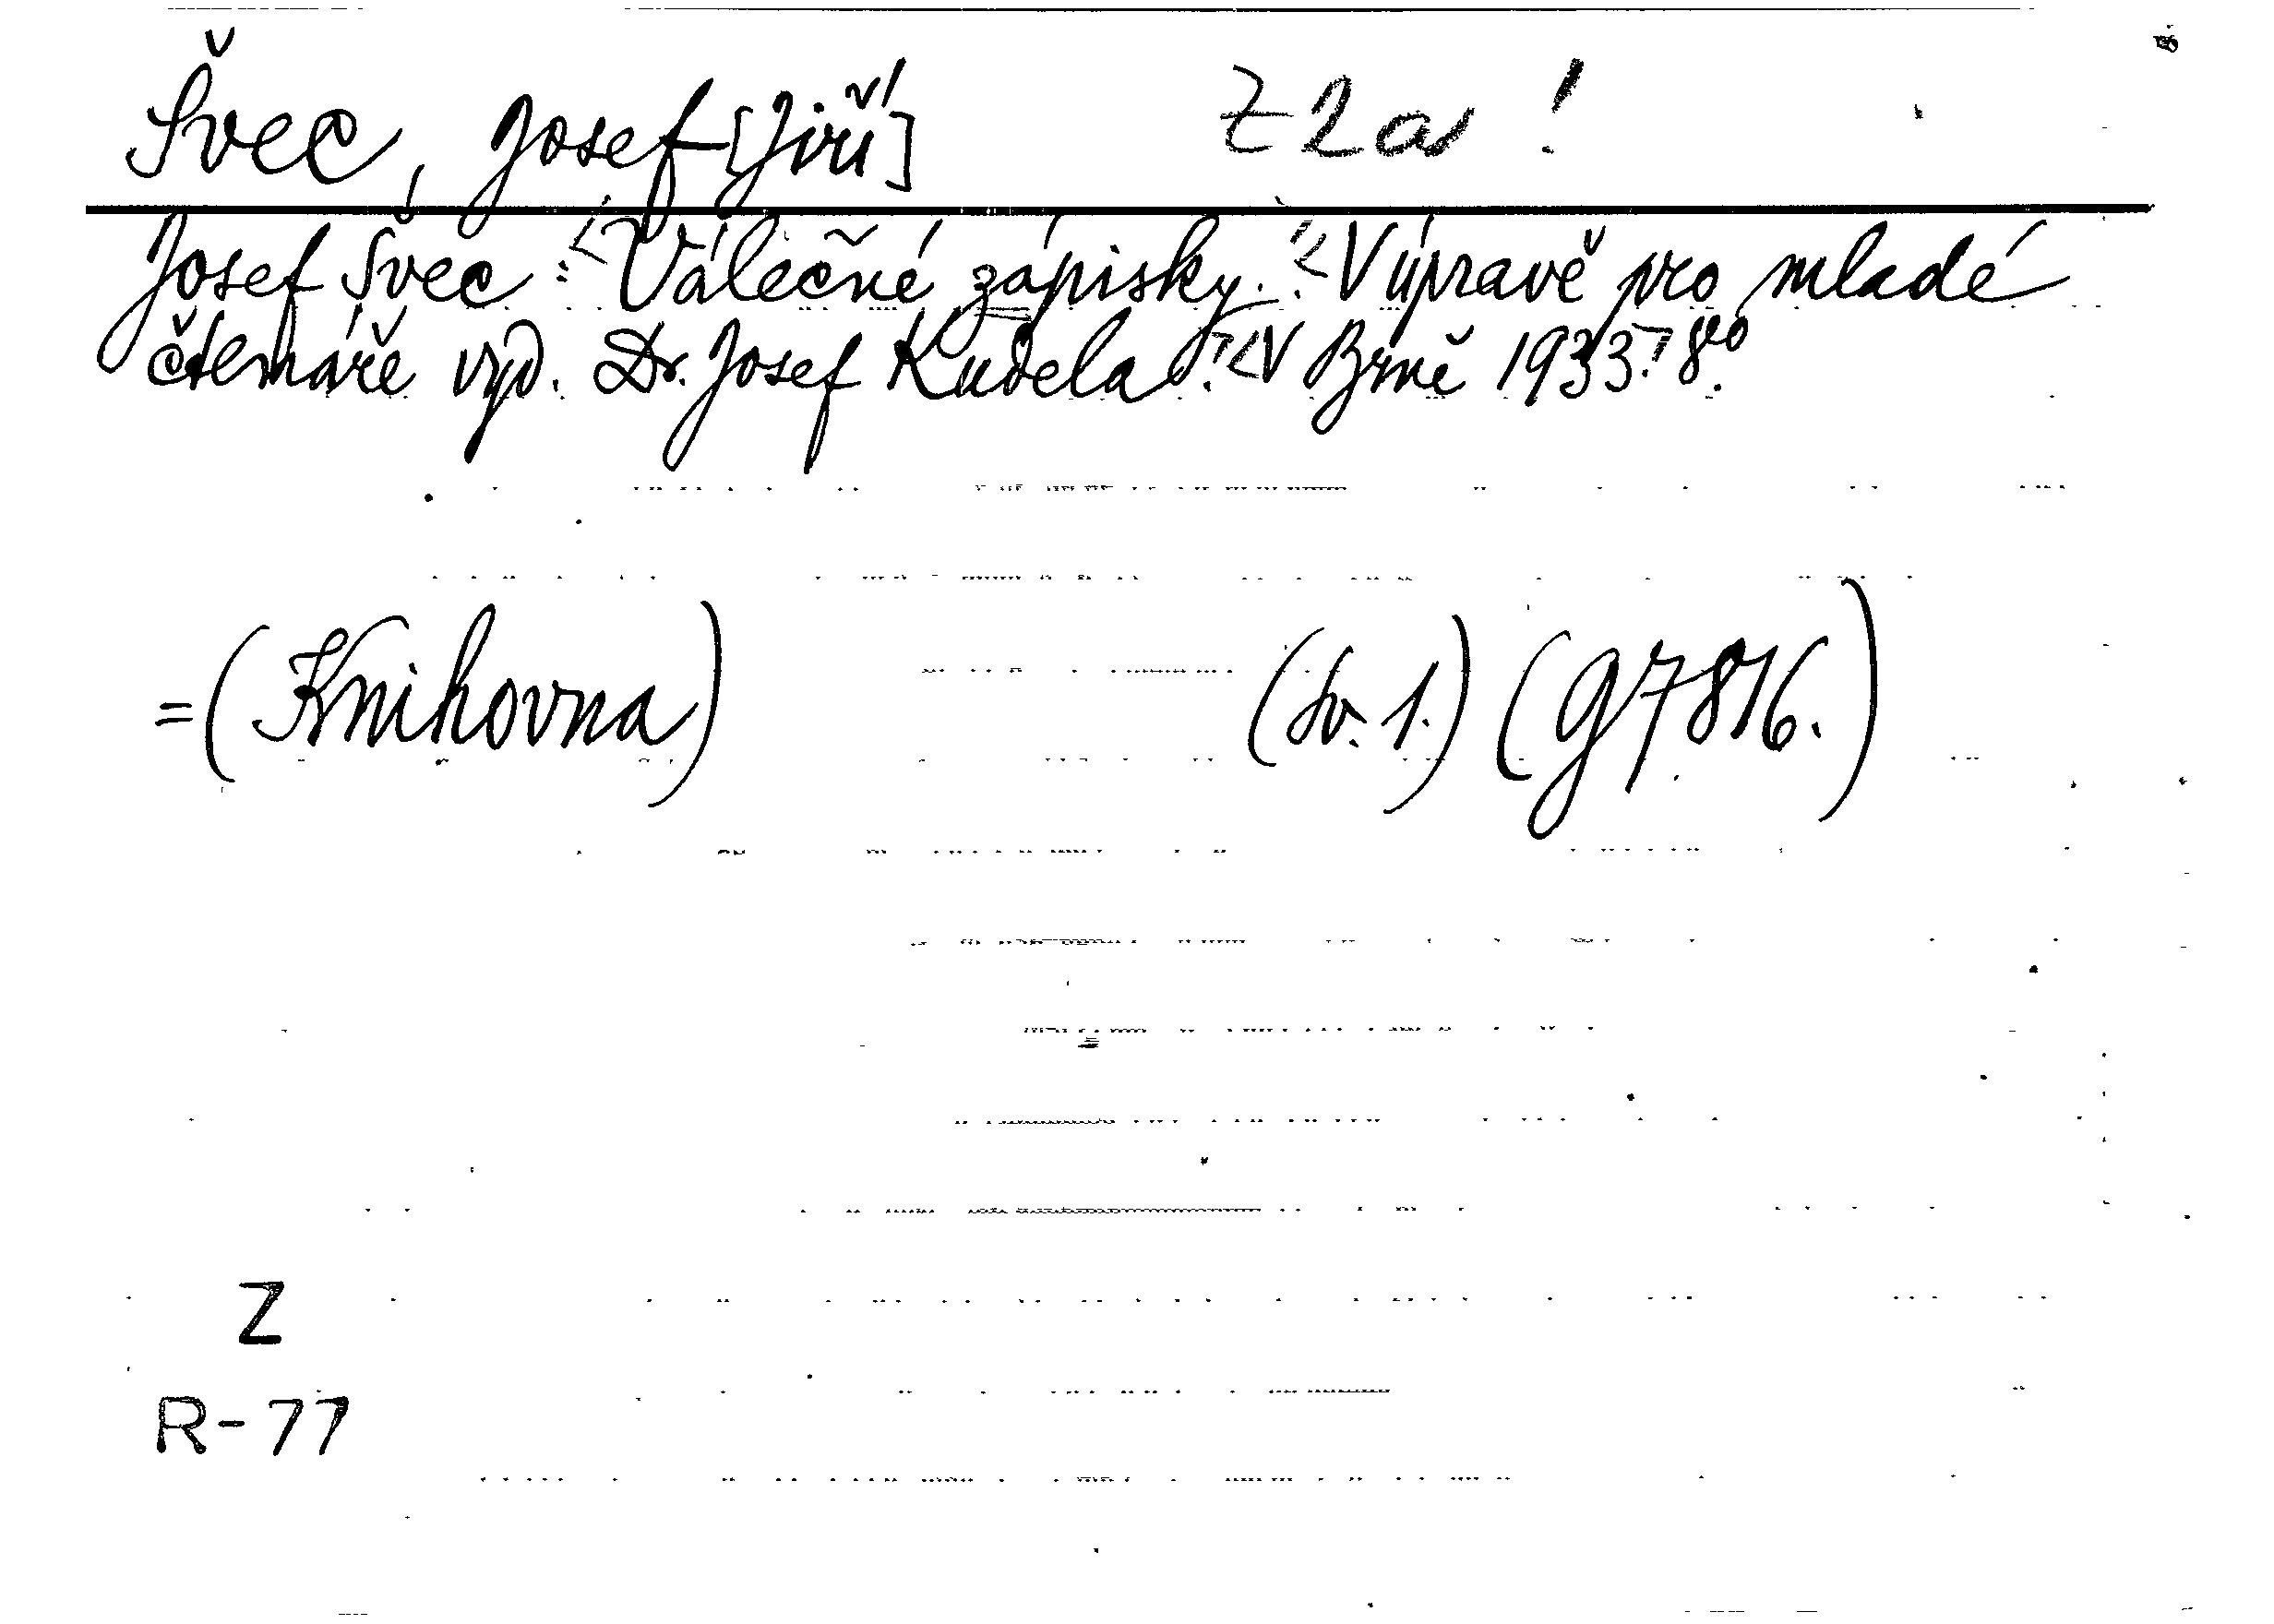 Švec, Josef [Jiří] Z 2 a !
Josef Švec: Válečné zápisky. V úpravě pro mladé
čtenáře vyd. Dr. Josef Kudela. V Brně 1933. 8°.
= (Knihovna) (Sv. 1.) (g 7816.)
Z
R-77